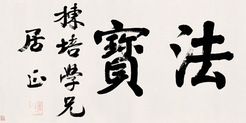 法寶
揀培學兄
居正